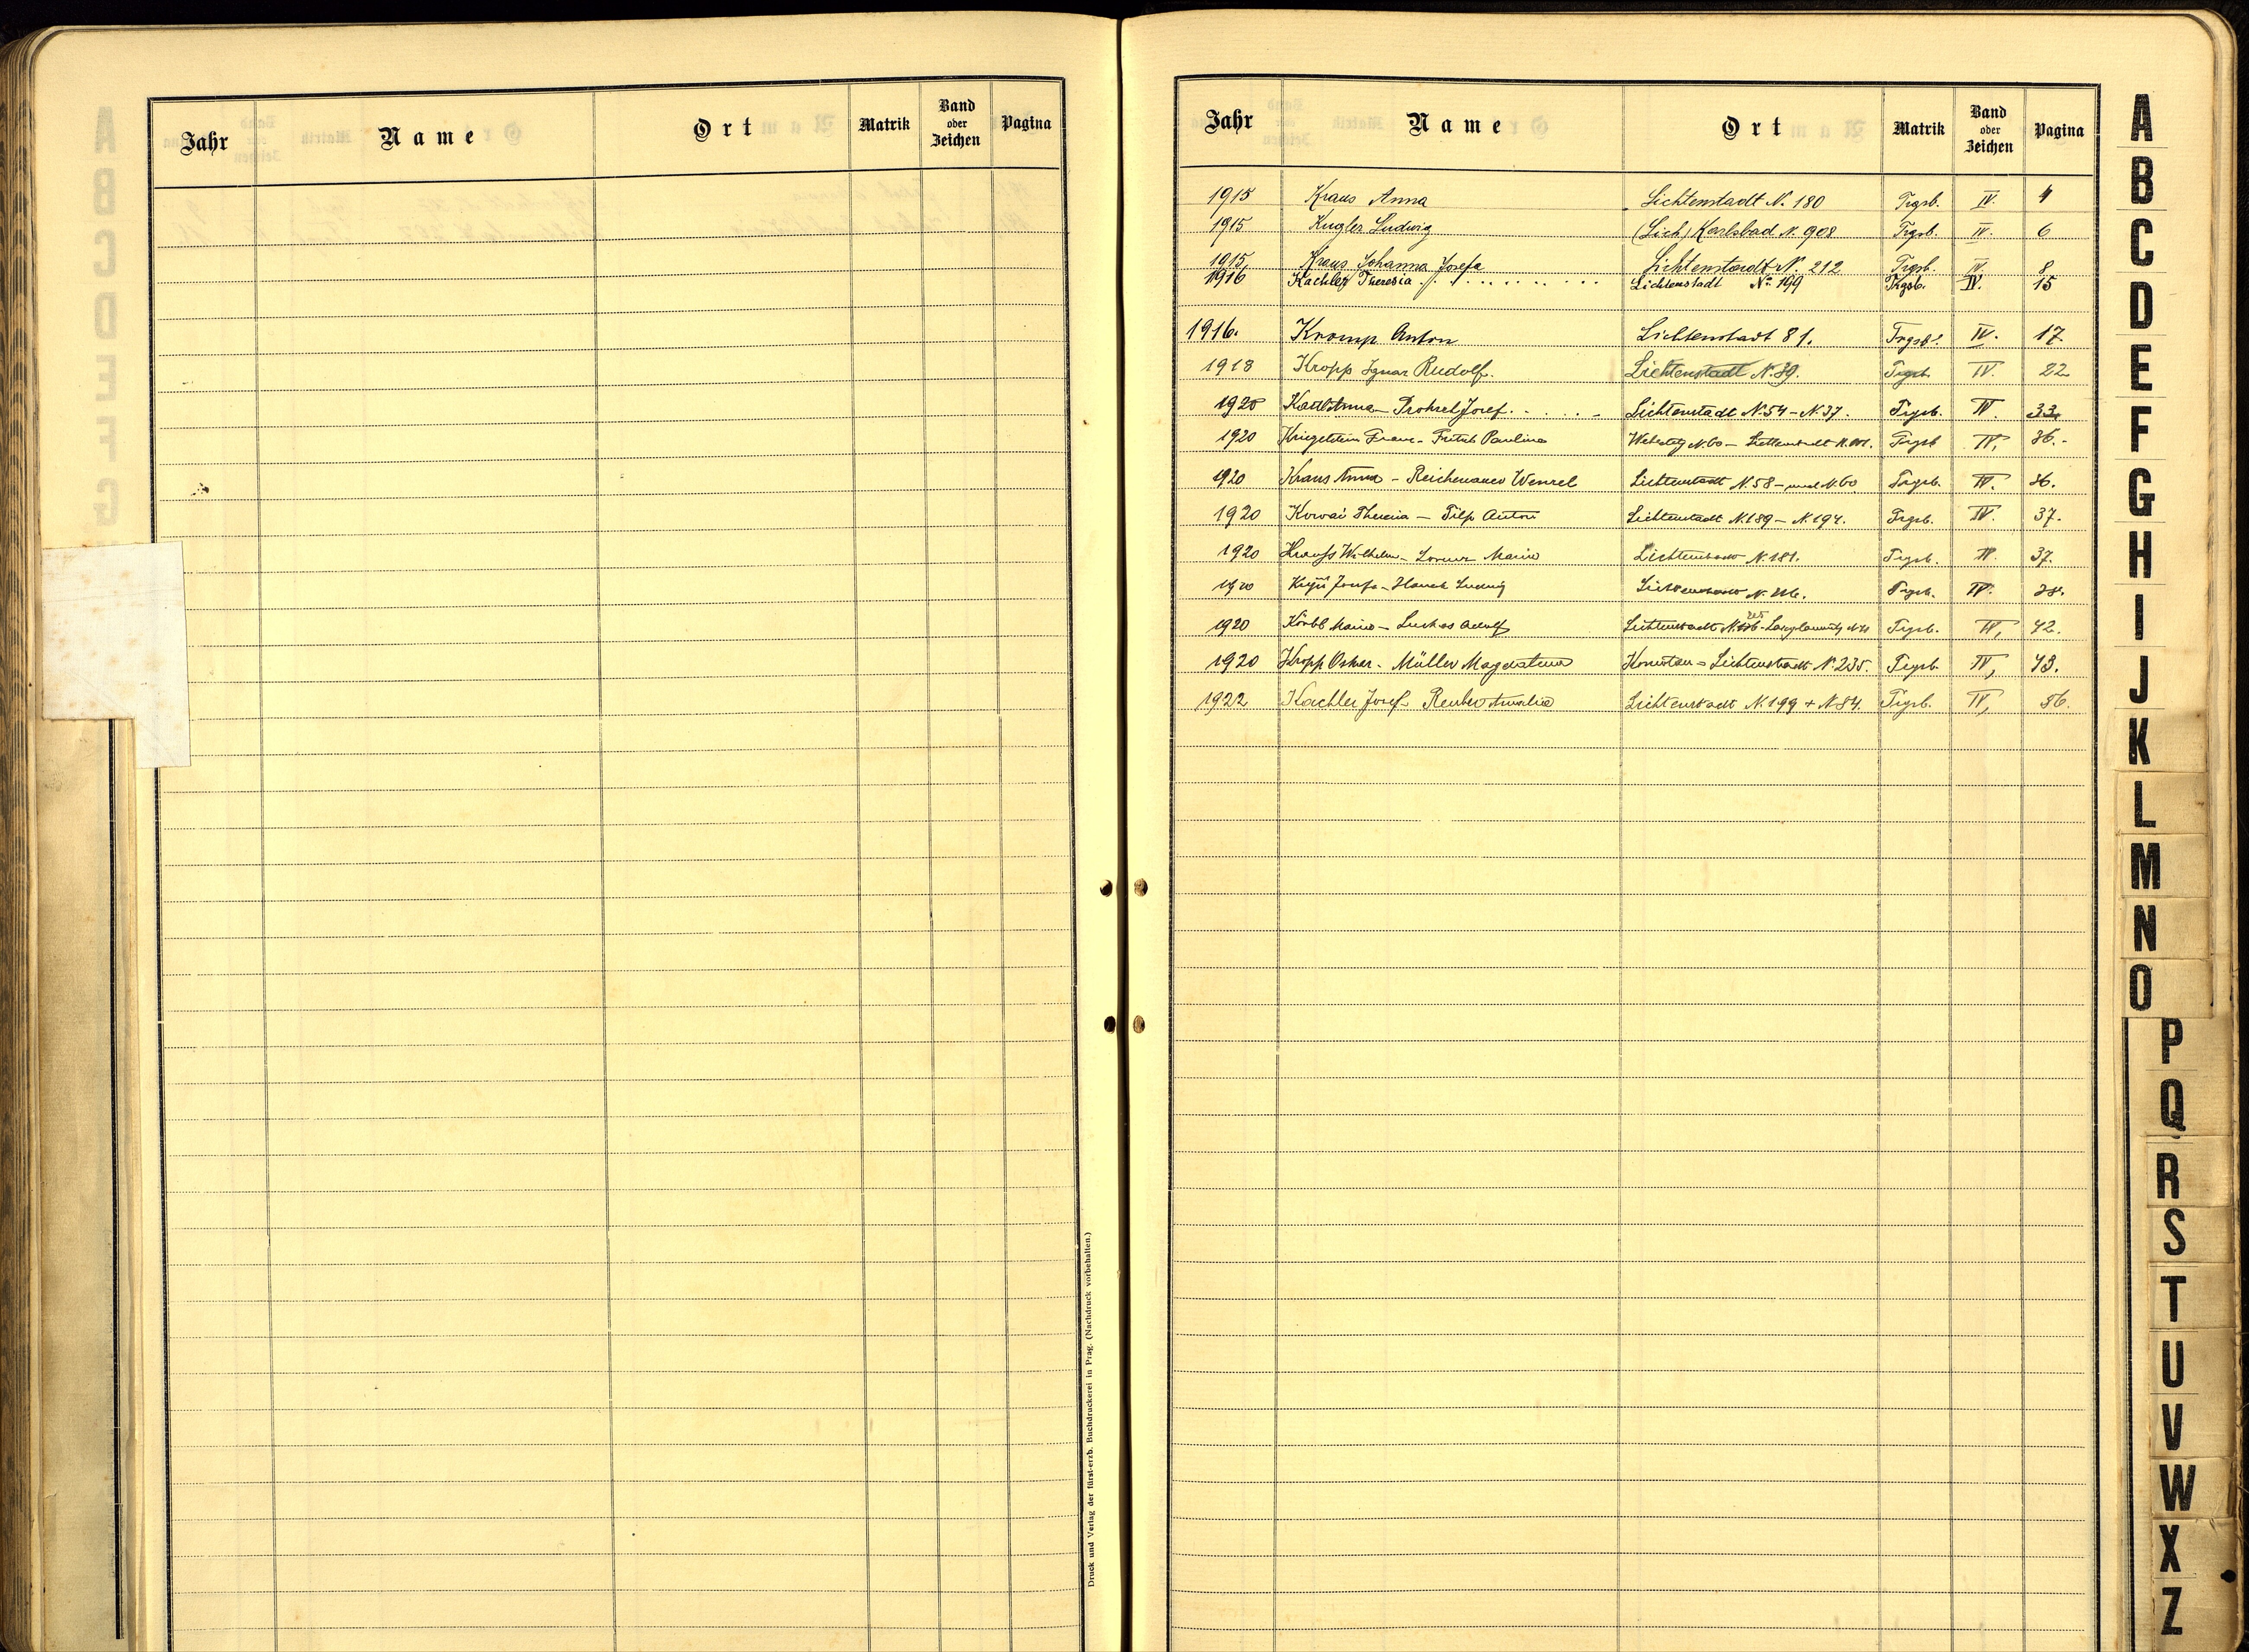 Jahr Name Ort Matrik Band oder Zeichen Pagina
Druck und Verlag der fürst-erzb. Buchdruckerei in Prag. (Nachdruck vorbehalten.)
Jahr Name Ort Matrik Band oder Zeichen Pagina
1915 Kraus Anna Lichtenstadt N. 180 Trgsb. IV. 4
1915 Kugler Ludwig (Lich) Karlsbad N. 908 Trgsb. IV. 6
1915 Kraus Johanna Josefa Lichtenstadt N. 212 Trgsb. IV. 8
1916 Kachler Theresia Lichtenstadt No 199 Trgsb. IV. 15
1916. Kromp Anton Lichtenstadt 81. Trgsb. IV. 17
1918 Kropp Ignaz Rudolf. Lichtenstadt N. 39. Trgsb. IV. 22
1920 Anna - Josef. Lichtenstadt N. 54 - N. 37. Trgsb. IV. 33
1920 Kriegelstein Franz - Pauline N. 60 - Lichtenstadt Trgsb. IV, 36.-
1920 Kraus Anna - Reichenauer Wenzel Lichtenstadt N. 58 - und N. 60 Trgsb. IV. 36.
1920 Theresia - Pilp Anton Lichtenstadt N. 189 - N. 194. Trgsb. IV. 37.
1920 Wilhelm - Lorenz Marie Lichtenstadt N. 181. Trgsb. IV. 37.
1920 Josefa - Ludwig Lichtenstadt Trgsb. IV. 38.
1920 Marie - Lukas Adolf Lichtenstadt Trgsb. IV, 42.
1920 Kropp Oskar - Müller Magdalena - Lichtenstadt N. 235. Trgsb. IV, 43.
1922 Kachler Josef - Amalia Lichtenstadt N. 199 + N. 84. Trgsb. IV, 56.
A
B
C
D
E
F
G
H
I
J
K
L
M
N
O
P
Q
R
S
T
U
V
W
X
Z